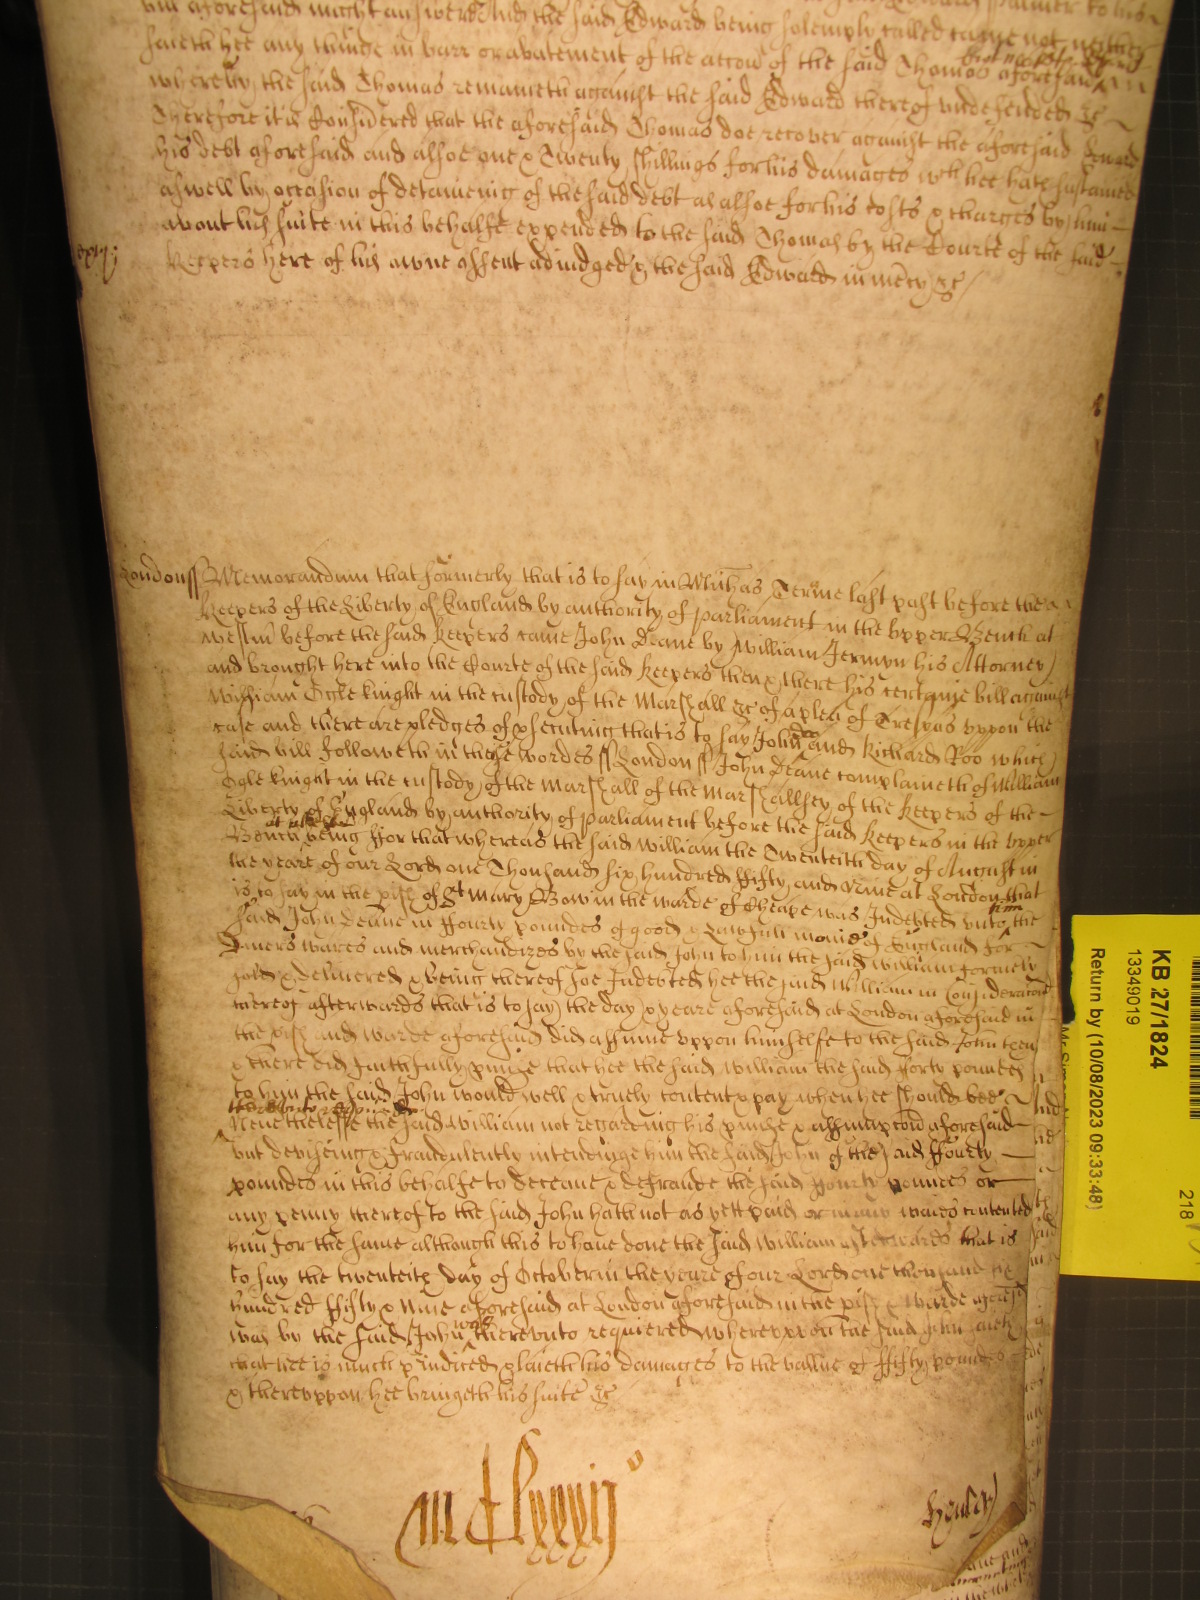 aforesaid might answere And the said Edward being solemply called came not neither
saieth hee any thinge in barr or abatement of the accon of the said Thomas aforesaid
whereby the said Thomas remaineth against the said Edward thereof undefended &c
Therefore it is Considered that the aforesaid Thomas doe recover against the aforesaid Edward
his debt aforesaid and alsoe one & Twenty shillings for his damages wch hee hath sustained
aswell by occasion of deteineinge of the said debt as alsoe for his costs & charges by him
about his suite in this behalfe expended to the said Thomas by the Courte of the said
Keepers here of his owne assent adiudged & the said Edward in mercy &c
London ss Memorandum that formerly that is to say in Michas Terme last past before the
Keepers of the Liberty of England by authority of parliament in the Upper Bench at
Westm before the said Keepers came John Deane by William Jermyn his Attorney
and brought here into the Courte of the said Keepers then & there his certaine bill against
William Ogle knight in the custody of the Marshall &c of a plea of Trespas uppon the
case and there are pledges of psecuting that is to say John Doe and Richard Roo which
said bill followeth in these wordes ss London ss John Deane complaineth of William
Ogle knight in the custody of the Marshall of the Marshallsey of the Keepers of the
Liberty of England by authority of parliament before the said Keepers in the upper
Bench being ffor that whereas the said William the Twenteith day of August in
the yeare of our Lord one Thousand six hundred ffifty and Nine at London that
is to say in the pish of St Mary Bow in the warde of Cheape was Indebted unto the
him
said John Deane in ffourty poundes of good & Lawfull monie of England for
Divers wares and merchandizes by the said John to him the said William formerly
sold & delivered & being thereof soe Indebted hee the said William in Consideracon
thereof afterwards that is to say the day & yeare aforesaid at London aforesaid in
the pish and warde aforesaid did assume uppon himselfe to the said John then
& there did faithfully pmise that hee the said William the said forty poundes
to him the said John would well & truely content & pay when hee should bee
thereunto required
Neverthelesse the said William not regarding his pmise & assumpcon aforesaid
but deviseing & fraudulently intendinge him the said John of the said ffourty
poundes in this behalfe to deceave & defraude the said ffourty poundes or
any penny thereof to the said John hath not as yett paid or any waies contented
him for the same although this to have done the said William afterwards that is
to say the twenteith day of October in the yeare of our Lord one thousand six
hundred ffifty & Nine aforesaid at London aforesaid in the pish & warde aforesaid
was by the said John thereunto requiered whereuppon the said John saieth
that hee is much piudiced & laieth his damages to the vallue of ffifty poundes
& thereuppon hee bringeth his suite &c
KB 27/1824
13349019
Return by (10/08/2023 09:33:48)
218